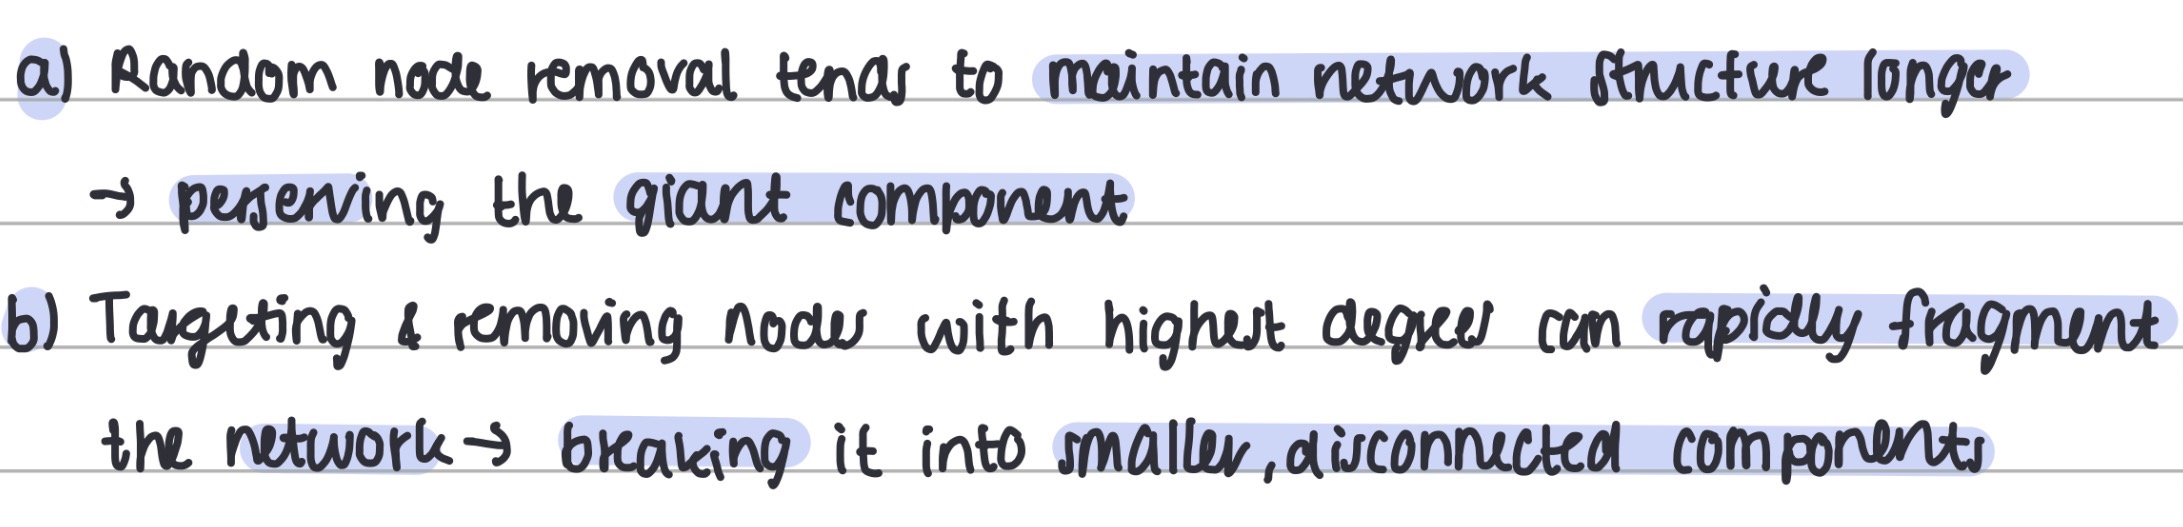 a) Random node removal tends to maintain network structure longer
→ perserving the giant component
b) Targeting & removing nodes with highest degrees can rapidly fragment
the network → breaking it into smaller, disconnected components